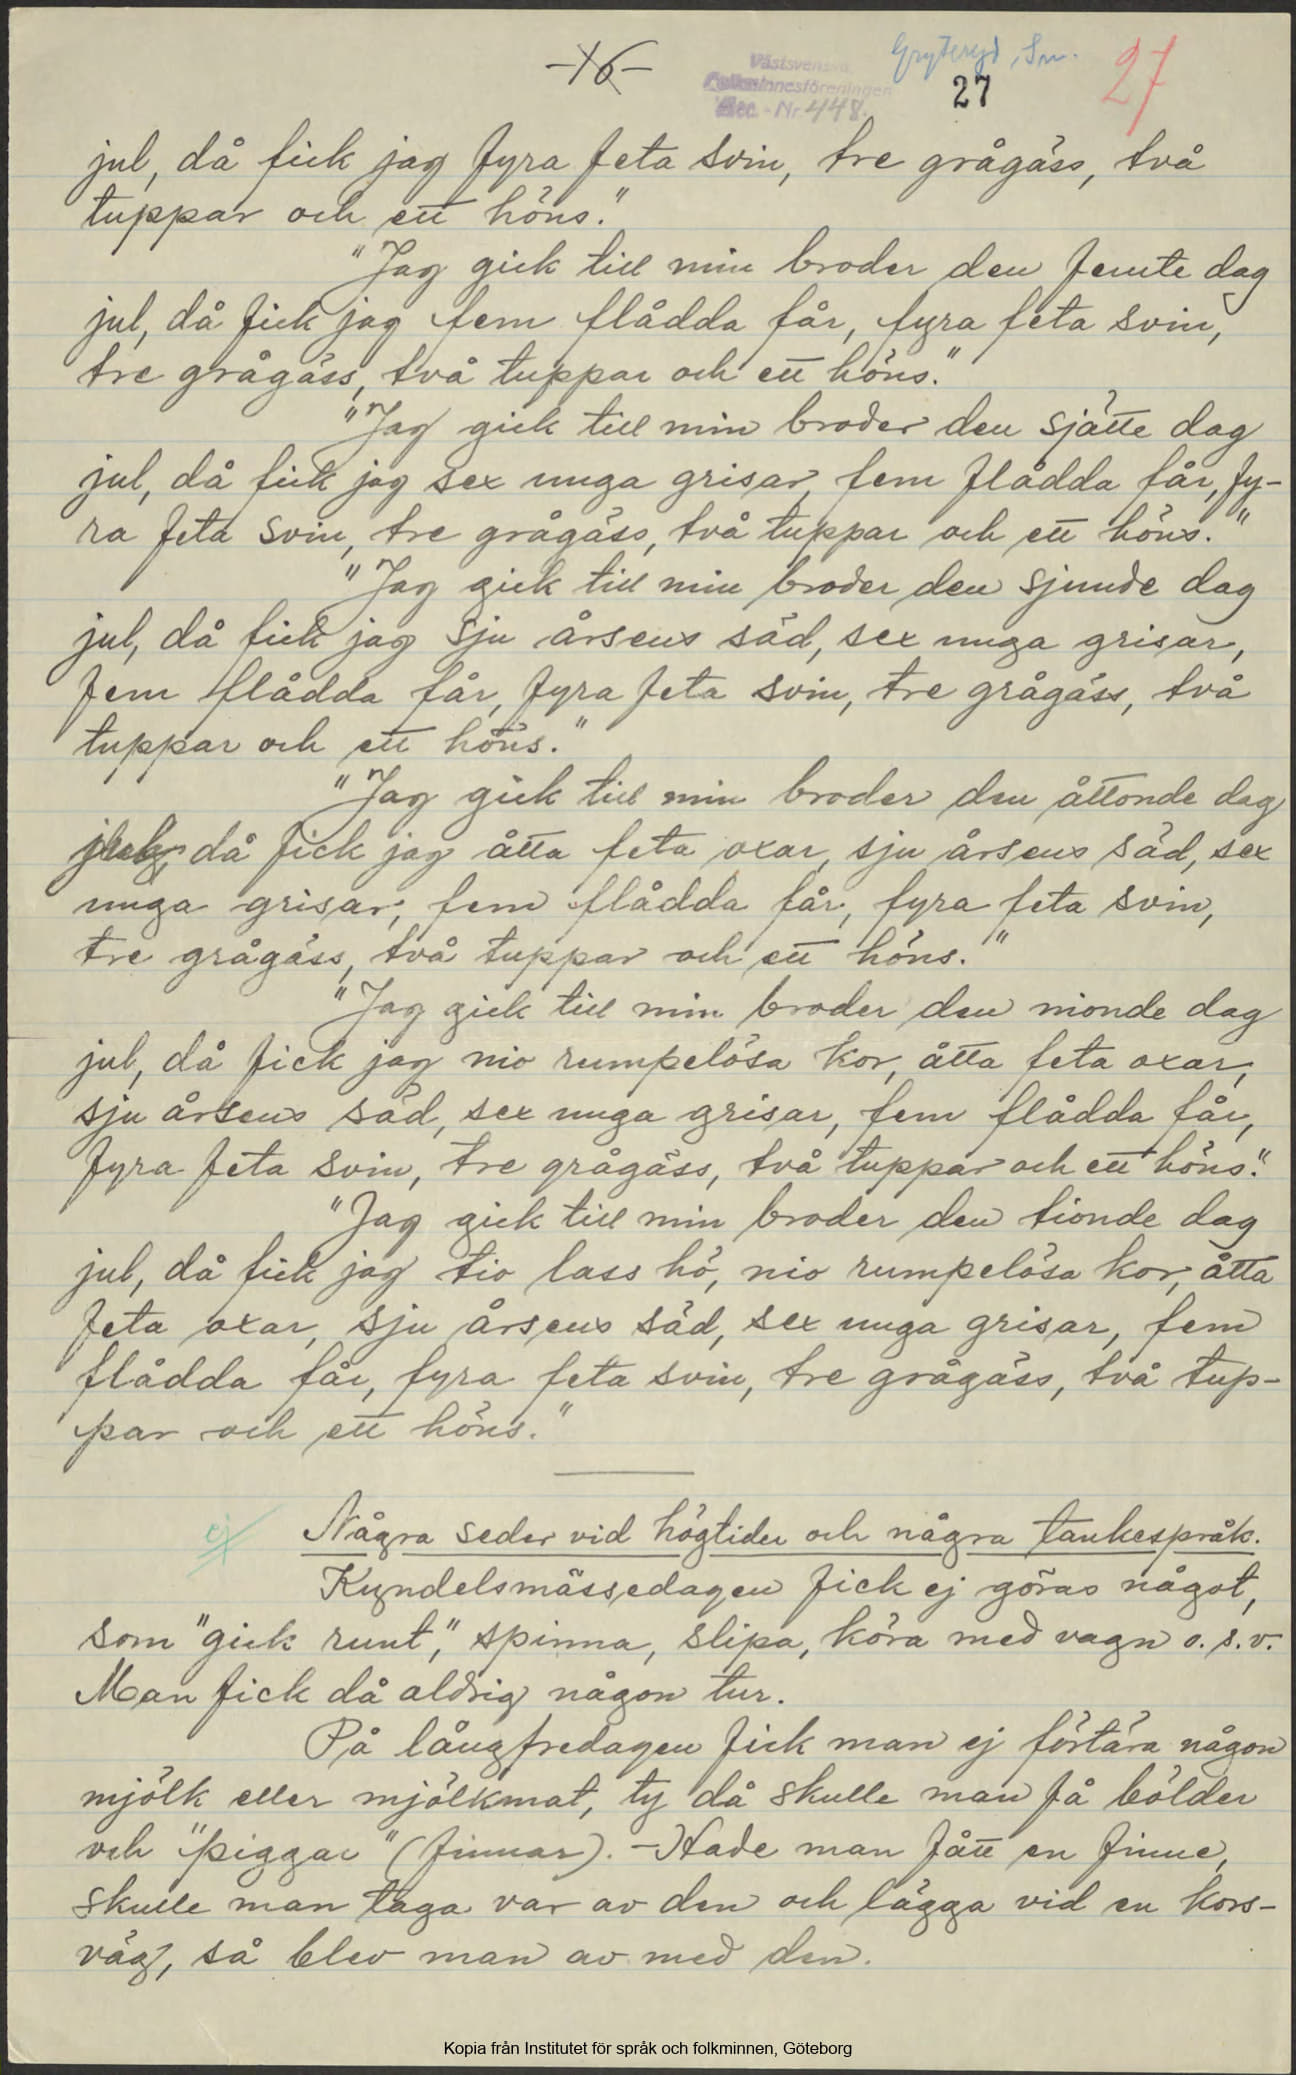 -16-
Västsvenska
Folkminnesföreningen
Acc. - Nr 448.
Gryteryd, Sm.
27
27
jul, då fick jag fyra feta svin, tre grågäss, två
tuppar och ett höns."
"Jag gick till min broder den femte dag
jul, då fick jag fem flådda får, fyra feta svin,
tre grågäss, två tuppar och ett höns."
"Jag gick till min broder den sjätte dag
jul, då fick jag sex unga grisar, fem flådda får, fy-
ra feta svin, tre grågäss, två tuppar och ett höns."
"Jag gick till min broder den sjunde dag
jul, då fick jag sju årsens säd, sex unga grisar,
fem flådda får, fyra feta svin, tre grågäss, två
tuppar och ett höns."
"Jag gick till min broder den åttonde dag
jul, då fick jag åtta feta oxar, sju årsens säd, sex
unga grisar, fem flådda får, fyra feta svin,
tre grågäss, två tuppar och ett höns."
"Jag gick till min broder den nionde dag
jul, då fick jag nio rumpelösa kor, åtta feta oxar,
sju årsens säd, sex unga grisar, fem flådda får,
fyra feta svin, tre grågäss, två tuppar och ett höns."
"Jag gick till min broder den tionde dag
jul, då fick jag tio lass hö, nio rumpelösa kor, åtta
feta oxar, sju årsens säd, sex unga grisar, fem
flådda får, fyra feta svin, tre grågäss, två tup-
par och ett höns."
ej
Några seder vid högtider och några tankespråk.
Kyndelsmässedagen fick ej göras något,
som "gick runt", spinna, slipa, köra med vagn o. s. v.
Man fick då aldrig någon tur.
På långfredagen fick man ej förtära någon
mjölk eller mjölkmat, ty då skulle man få bölder
och "piggar" (finnar). - Hade man fått en finne,
skulle man taga var av den och lägga vid en kors-
väg, så blev man av med den.
Kopia från Institutet för språk och folkminnen, Göteborg